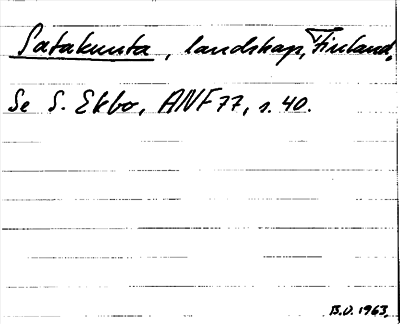 Satakunta, landskap, Finland.
Se S. Ekbo, ANF 77, s. 40.
B.U. 1963.